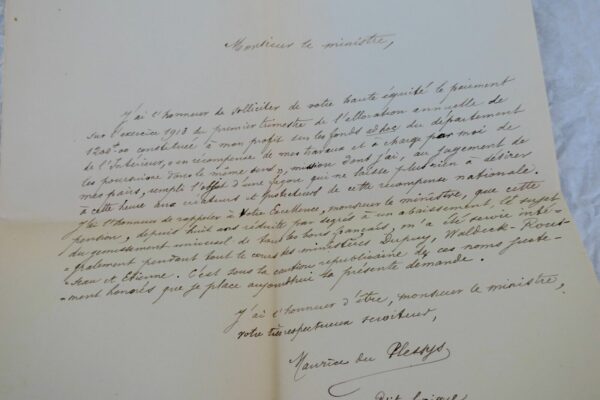 Monsieur le ministre,
J'ai l'honneur de solliciter de votre haute équité le paiement
sur l'exercice 1913 du premier trimestre de l'allocation annuelle de
1200f00 constituée à mon profit sur les fonds ad hoc du département
de l'Intérieur, en récompense de mes travaux et à charge par moi de
les poursuivre dans le même sens, mission dont j'ai, au jugement de
mes pairs, rempli l'office d'une façon qui ne laisse plus rien à désirer
à cette heure aux créateurs et protecteurs de cette récompense nationale.
J'ai l'honneur de rappeler à Votre Excellence, monsieur le ministre, que cette
pension, depuis huit ans réduite par degrés à un abaissement, le sujet
du gémissement universel de tous les bons français, m'a été servie inté-
-gralement pendant tout le cours des ministères Dupuy, Waldeck-Rous-
seau et Etienne. C'est sous la caution républicaine de ces noms juste-
-ment honorés que je place aujourd'hui la présente demande.
J'ai l'honneur d'être, monsieur le ministre,
votre très respectueux serviteur,
Maurice du Plessys